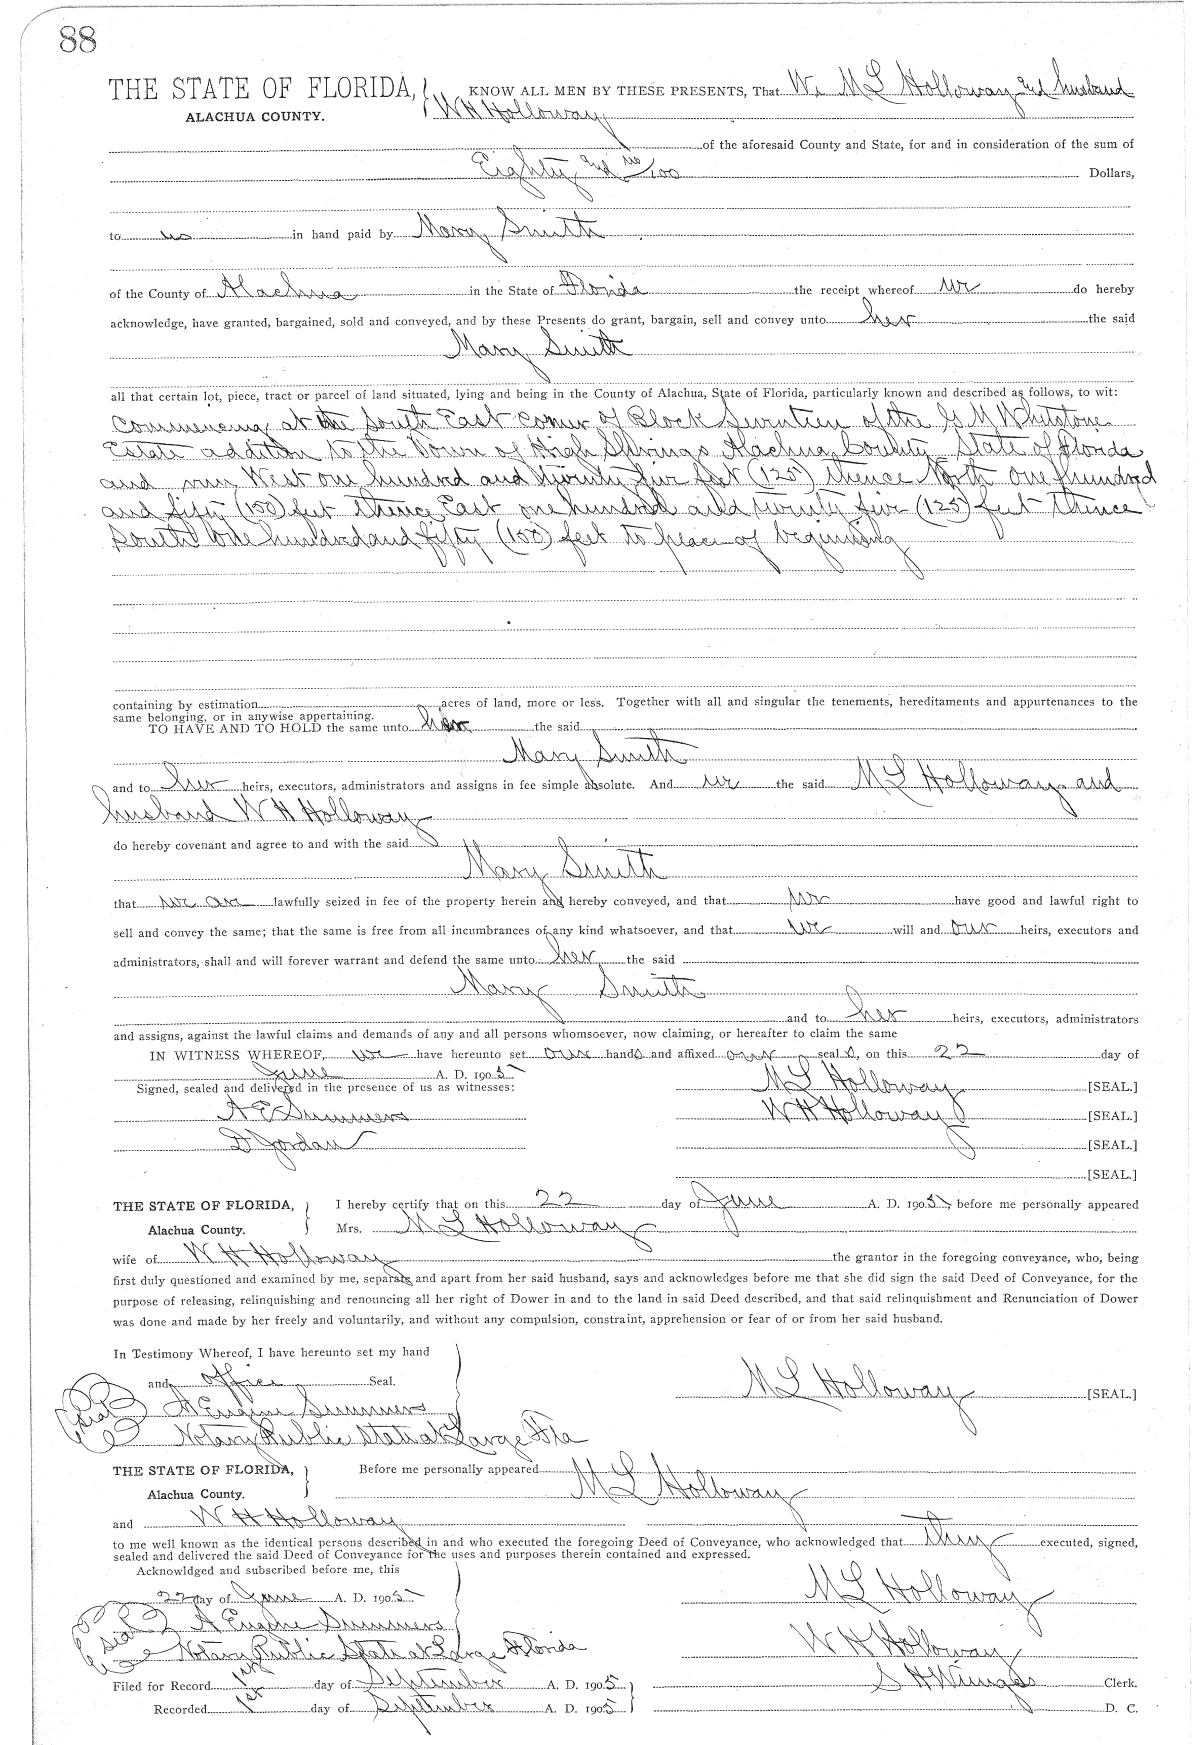 88
THE STATE OF FLORIDA, KNOW ALL MEN BY THESE PRESENTS, That We M L Holloway and husband
ALACHUA COUNTY. W H Holloway
of the aforesaid County and State, for and in consideration of the sum of
Eighty and no/100 Dollars,
to us in hand paid by Mary Smith
of the County of Alachua in the State of Florida the receipt whereof we do hereby
acknowledge, have granted, bargained, sold and conveyed, and by these Presents do grant, bargain, sell and convey unto her the said
Mary Smith
all that certain lot, piece, tract or parcel of land situated, lying and being in the County of Alachua, State of Florida, particularly known and described as follows, to wit:
Commencing at the South East corner of Block Seventeen of the G M Whetstone
Estate addition to the Town of High Springs Alachua County State of Florida
and run West one hundred and twenty five feet (125) thence North One hundred
and fifty (150) feet thence East one hundred and twenty five (125) feet thence
South One hundred and fifty (150) feet to place of beginning
containing by estimation acres of land, more or less. Together with all and singular the tenements, hereditaments and appurtenances to the
same belonging, or in anywise appertaining.
TO HAVE AND TO HOLD the same unto her the said
Mary Smith
and to her heirs, executors, administrators and assigns in fee simple absolute. And we the said M L Holloway and
husband W H Holloway
do hereby covenant and agree to and with the said
Mary Smith
that we are lawfully seized in fee of the property herein and hereby conveyed, and that we have good and lawful right to
sell and convey the same; that the same is free from all incumbrances of any kind whatsoever, and that we will and our heirs, executors and
administrators, shall and will forever warrant and defend the same unto her the said
Mary Smith
and to her heirs, executors, administrators
and assigns, against the lawful claims and demands of any and all persons whomsoever, now claiming, or hereafter to claim the same
IN WITNESS WHEREOF, we have hereunto set our hands and affixed our seals, on this 22 day of
June A. D. 1905
Signed, sealed and delivered in the presence of us as witnesses: M L Holloway [SEAL.]
A E Summers W H Holloway [SEAL.]
D Jordan [SEAL.]
[SEAL.]
THE STATE OF FLORIDA, I hereby certify that on this 22 day of June A. D. 1905, before me personally appeared
Alachua County. Mrs. M L Holloway
wife of W H Holloway the grantor in the foregoing conveyance, who, being
first duly questioned and examined by me, separate and apart from her said husband, says and acknowledges before me that she did sign the said Deed of Conveyance, for the
purpose of releasing, relinquishing and renouncing all her right of Dower in and to the land in said Deed described, and that said relinquishment and Renunciation of Dower
was done and made by her freely and voluntarily, and without any compulsion, constraint, apprehension or fear of or from her said husband.
In Testimony Whereof, I have hereunto set my hand
and office Seal. M L Holloway [SEAL.]
seal A Eugene Summers
Notary Public State at Large Fla
THE STATE OF FLORIDA, Before me personally appeared M L Holloway
Alachua County.
and W H Holloway
to me well known as the identical persons described in and who executed the foregoing Deed of Conveyance, who acknowledged that they executed, signed,
sealed and delivered the said Deed of Conveyance for the uses and purposes therein contained and expressed.
Acknowldged and subscribed before me, this
22 day of June A. D. 1905 M L Holloway
seal A Eugene Summers
Notary Public State at Large Florida W H Holloway
Filed for Record 1st day of September A. D. 1905 S H Wienges Clerk.
Recorded 1st day of September A. D. 1905 D. C.